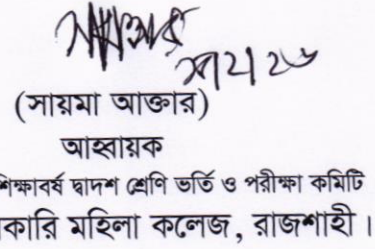 (সায়মা আক্তার)
আহ্বায়ক
শিক্ষাবর্ষ দ্বাদশ শ্রেণি ভর্তি ও পরীক্ষা কমিটি
কারি মহিলা কলেজ, রাজশাহী।